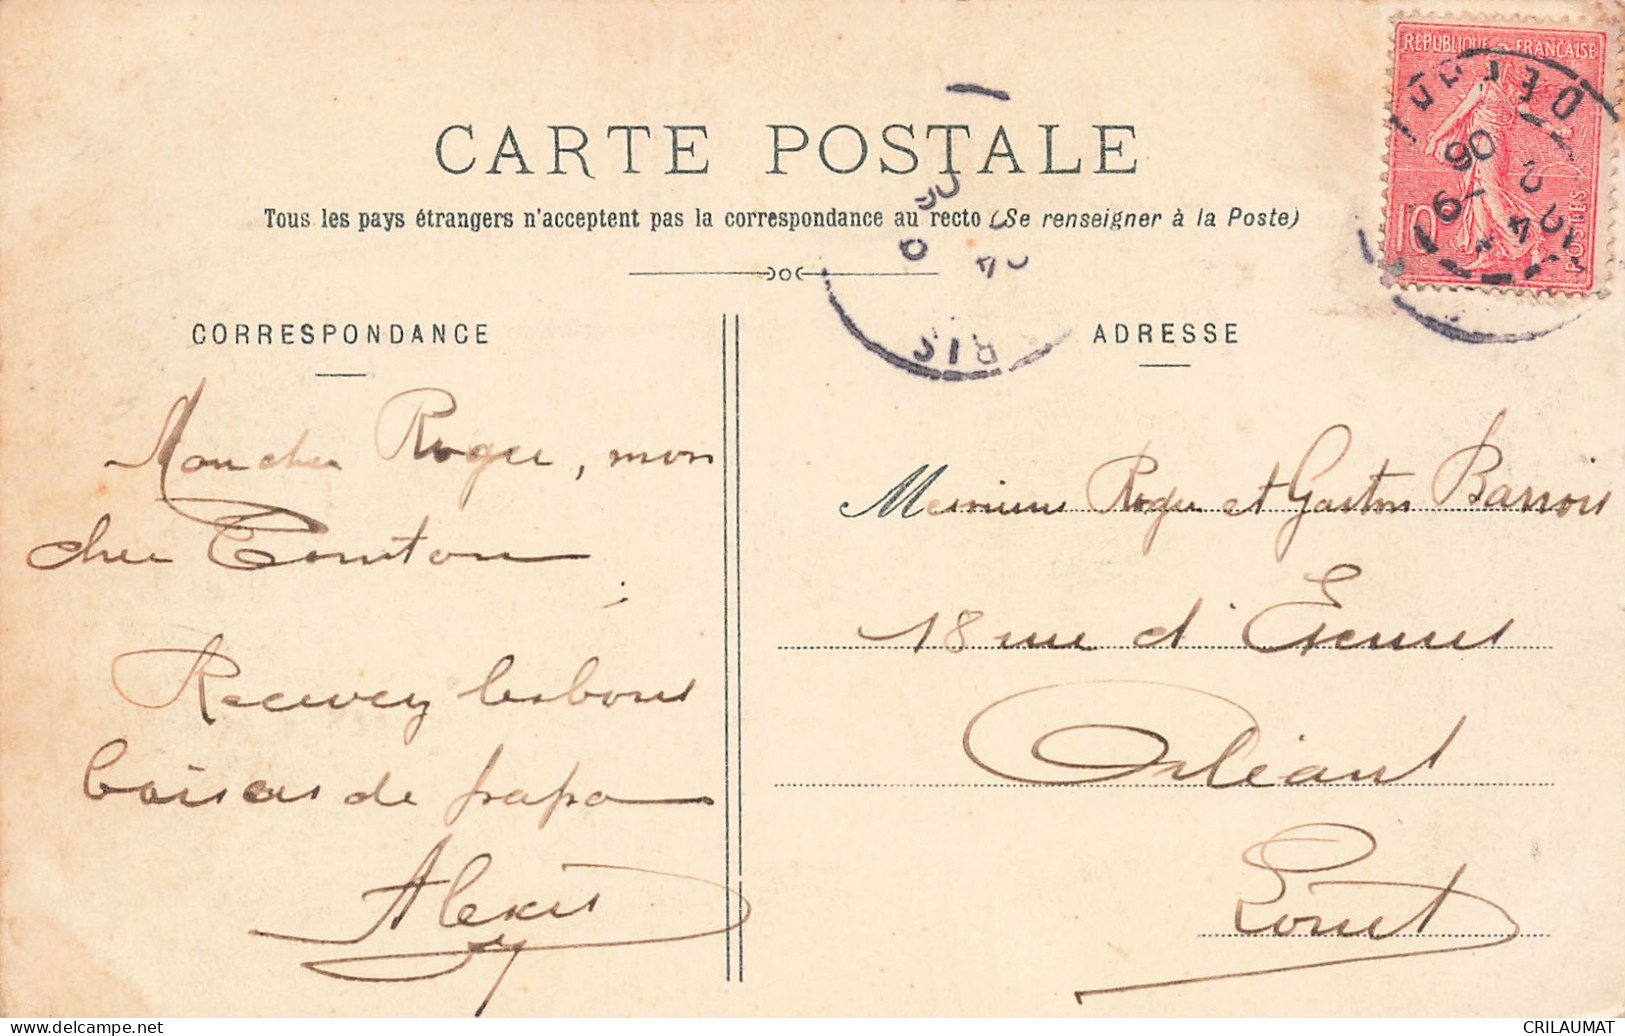 RÉPUBLIQUE FRANÇAISE
POSTES
10
CARTE POSTALE
Tous les pays étrangers n'acceptent pas la correspondance au recto (Se renseigner à la Poste)
CORRESPONDANCE
Mon cher Roger, mon
cher Tonton
Recevez les bons
baisers de papa
Alexis
ADRESSE
Messieurs Roger et Gaston Barrois
18 rue d'
Orléans
Loiret
CRILAUMAT